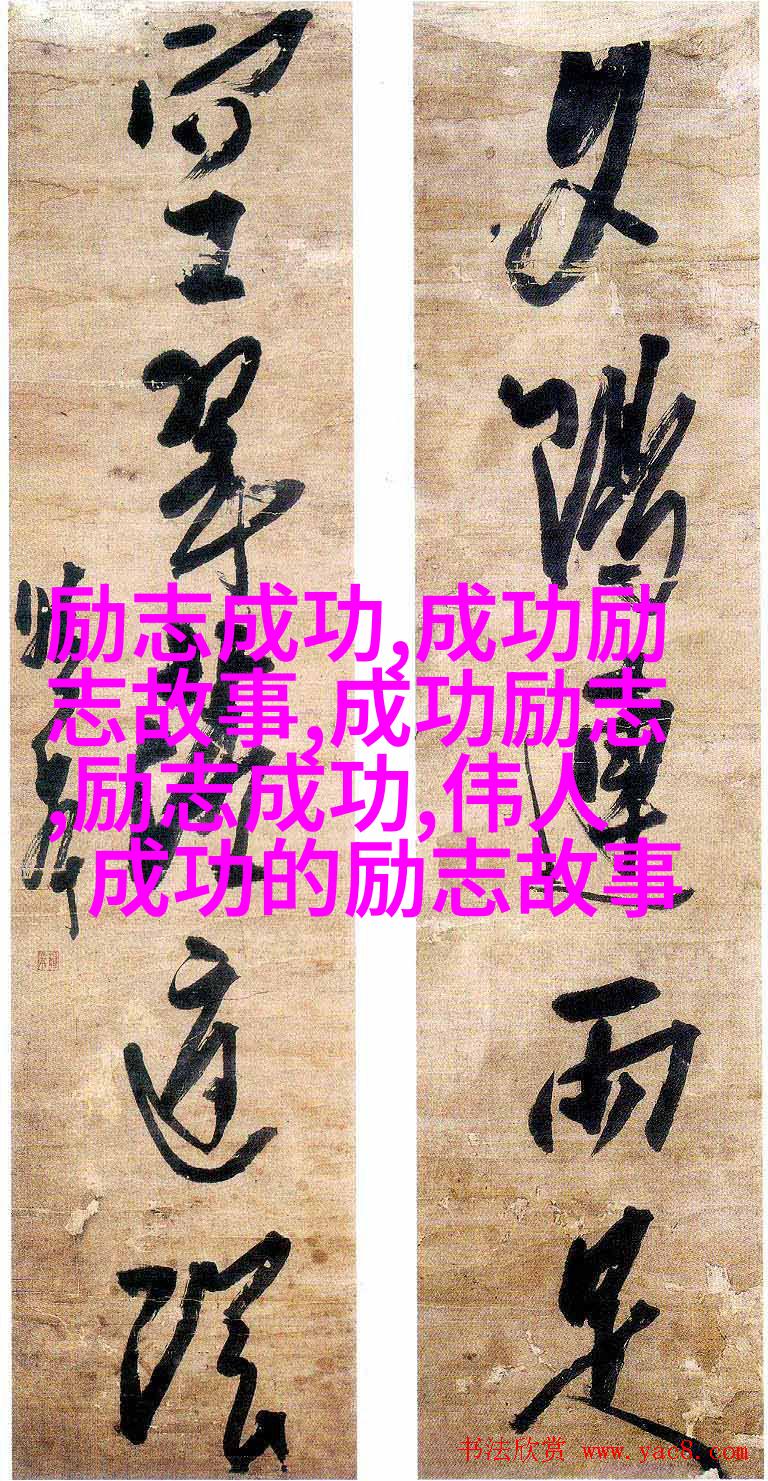 夕陽連雨足
空翠庭陰
励志成功,成功励
志故事,成功励志
,励志成功,伟人
成功的励志故事
书法欣赏 www.yac8.com